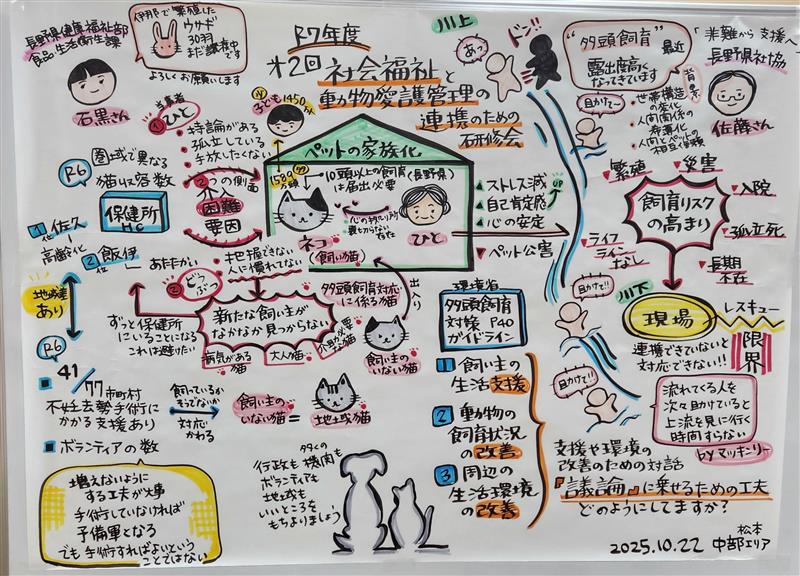 R7年度
第2回 社会福祉と
動物愛護管理の
連携のための
研修会
長野県健康福祉部
食品・生活衛生課
石黒さん
伊那で繁殖した
ウサギ
30羽
まだ譲渡中です
よろしくお願いします
当事者
①ひと
・持論がある
・孤立している
・手放したくない
子ども1450万人
R6
圏域で異なる
猫収容数
保健所
HC
2つの側面
介入
困難
要因
1位 佐久
高齢化
2位 飯伊
あたたかい
地域差
あり
②どうぶつ
・把握できない
・人に慣れてない
新たな飼い主が
なかなか見つからない
病気がある
猫
大人猫
ずっと保健所
にいることになる
これは避けたい
R6
41/77市町村
不妊去勢手術に
かかる支援あり
飼っているか
そうでないか
対応
かわる
飼い主の
いない猫
=
地域猫
ボランティアの数
増えないように
する工夫が大事
手術していなければ
予備軍となる
でも手術すればよいという
ことではない
ペットの家族化
10頭以上の飼育(長野県)
は届出必要
ネコ
(飼い猫)
心のよりどころ
ひと
ストレス減
自己肯定感
心の安定
UP
ペット公害
多頭飼育対応
に係る猫
出入り
飼い主の
いない猫
環境省
多頭飼育
対策 P40
ガイドライン
1 飼い主の
生活支援
2 動物の
飼育状況
の改善
3 周辺の
生活環境
の改善
多くの
行政も機関も
ボランティアも
地域も
いいところを
もちよりましょう
川上
あっ
ドン!!
"多頭飼育"
最近
露出度高く
なってきています
背景
非難から支援へ
長野県社協
佐藤さん
・世帯構造
の変化
・人間関係の
希薄化
・人間とペットの
助けて〜
繁殖
災害
入院
孤立死
長期
不在
ライフ
ライン
なし
飼育リスク
の高まり
助けて!!
川下
現場
レスキュー
限界
連携できていないと
対応できない!!
助けて!!
流れてくる人を
次々助けていると
上流を見に行く
時間すらない
byマッキンリー
支援や環境の
改善のための対話
『議論』に乗せるための工夫
どのようにしてますか?
2025.10.22
松本
中部エリア